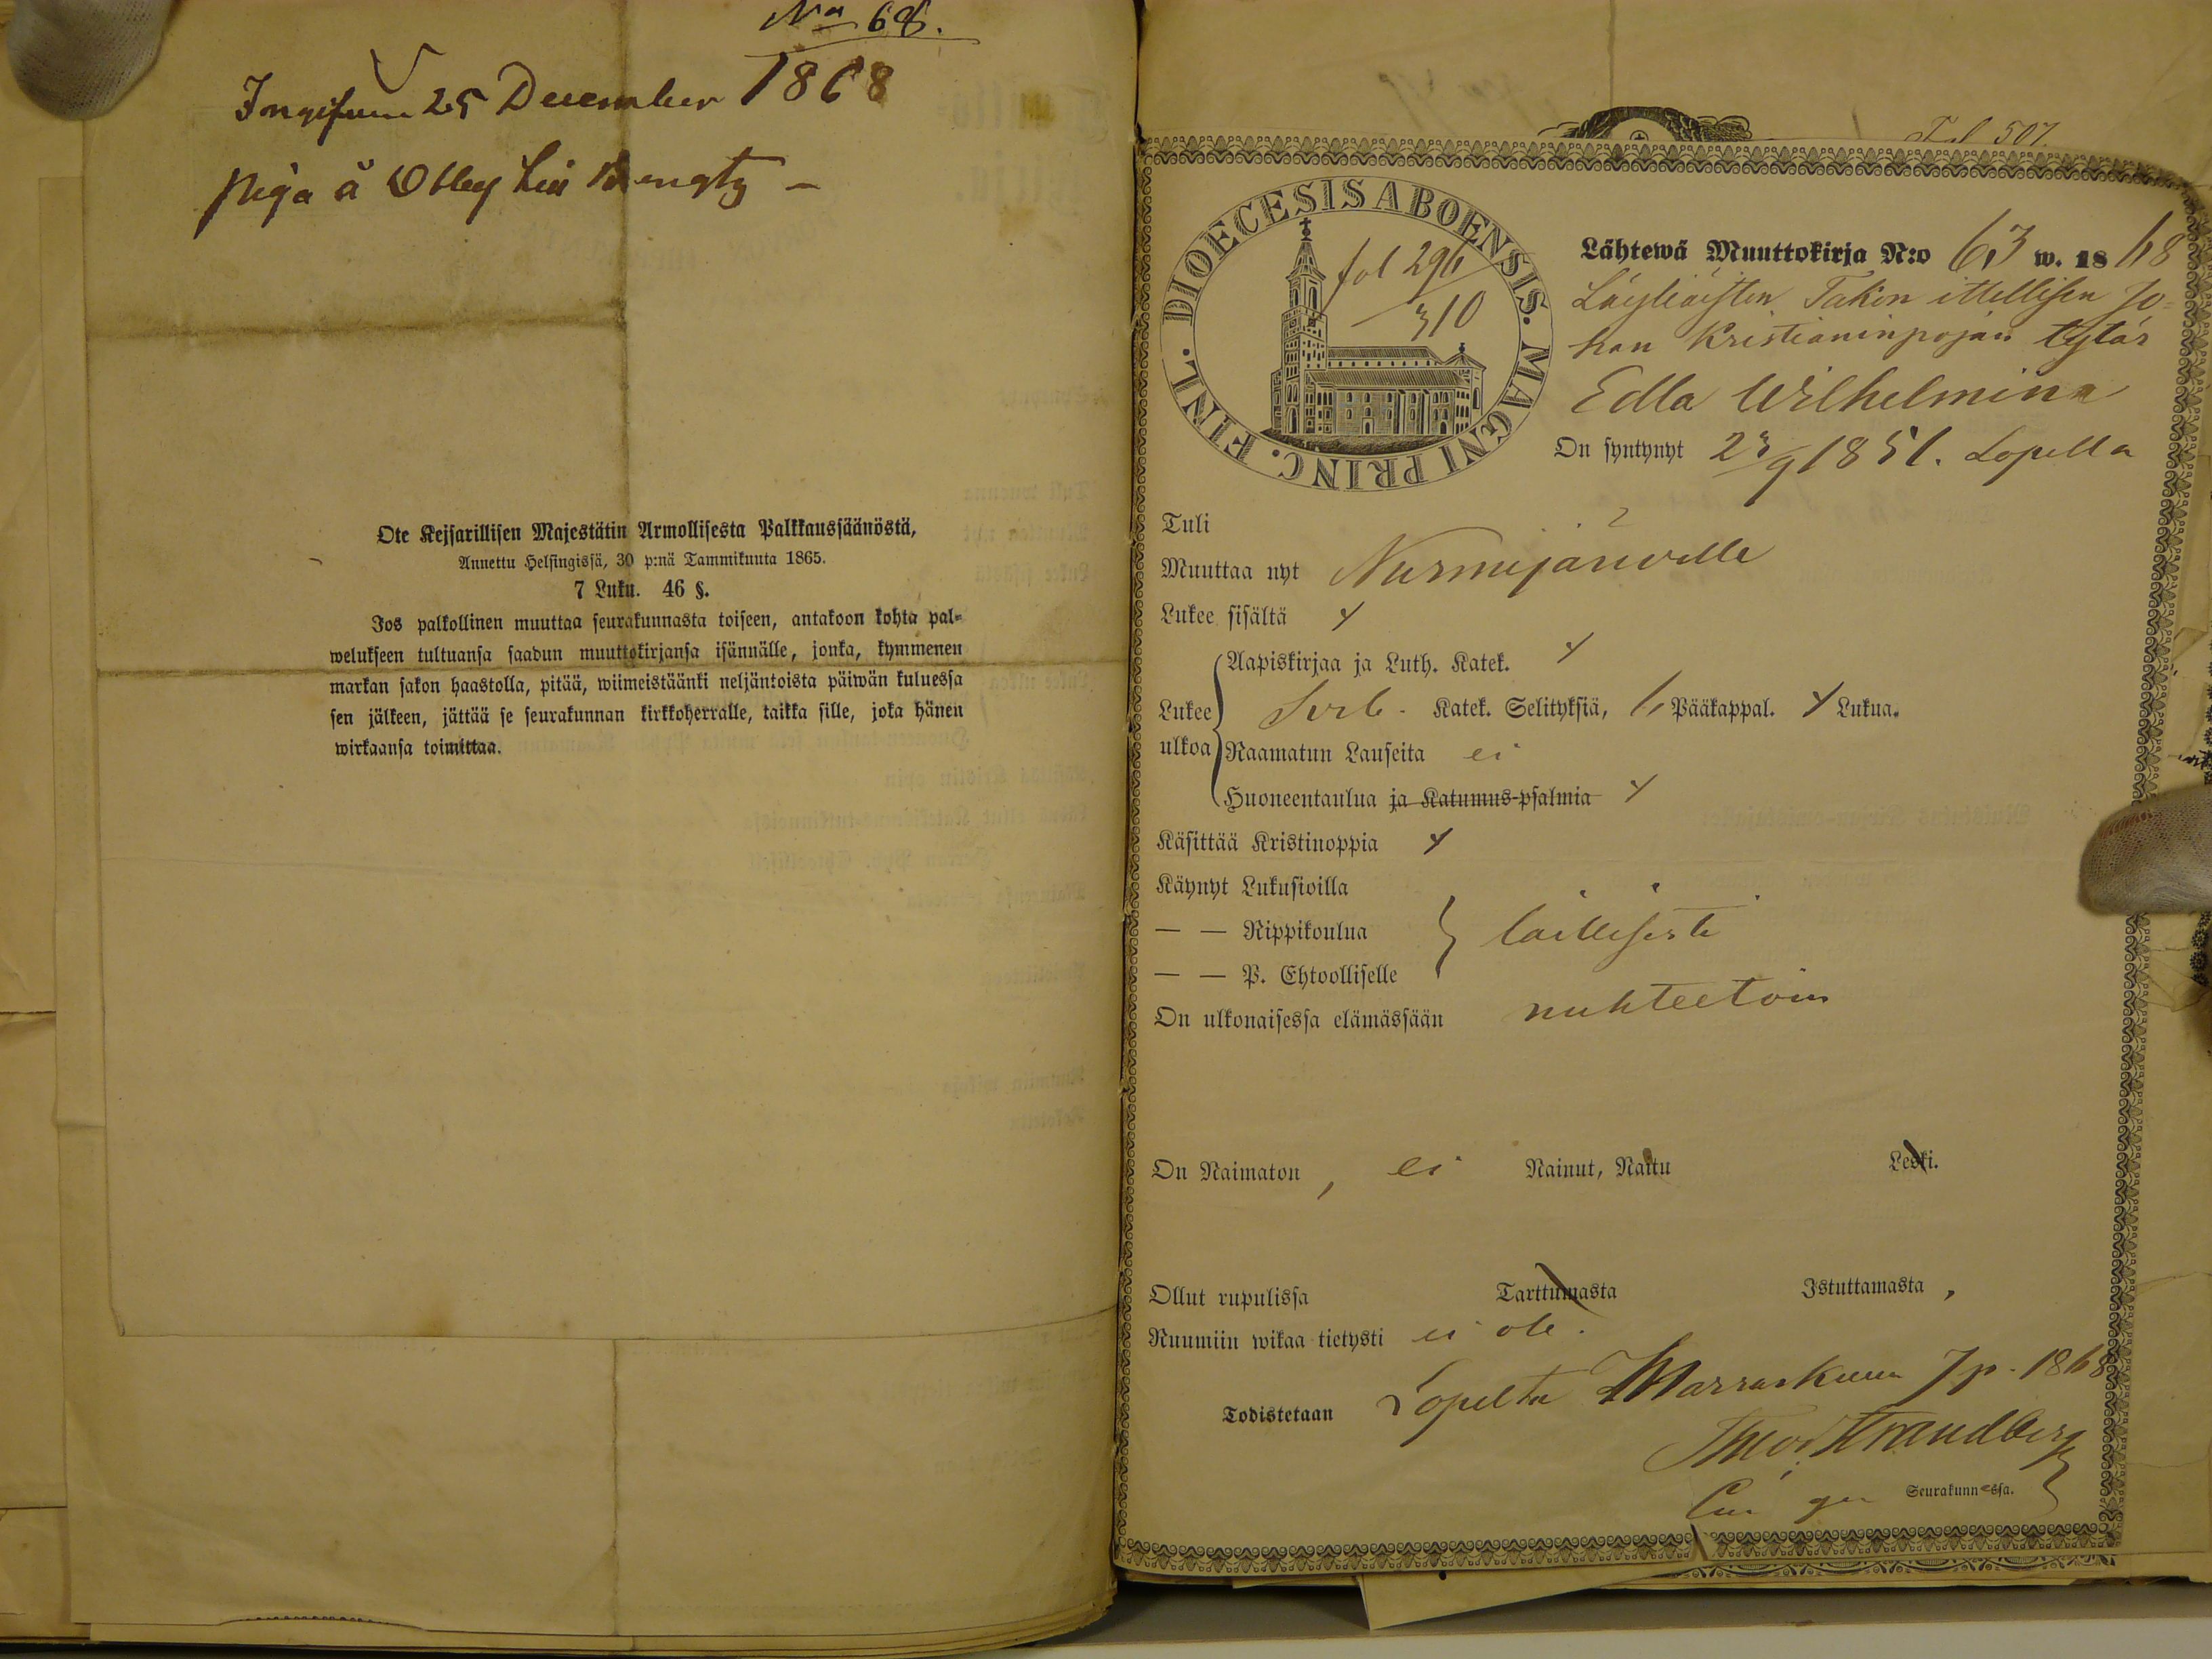 No 68.
25 December 1868
Piga å
Ote Keisarillisen Majestätin Armollisesta Palkkaussäänöstä,
Annettu Helsingissä, 30 p:nä Tammikuuta 1865.
7 Luku. 46 §.
Jos palkollinen muuttaa seurakunnasta toiseen, antakoon kohta pal=
welukseen tultuansa saadun muuttokirjansa isännälle, jonka, kymmenen
markan sakon haastolla, pitää, wiimeistäänki neljäntoista päiwän kuluessa
sen jälkeen, jättää se seurakunnan kirkkoherralle, taikka sille, joka hänen
wirkaansa toimittaa.
Fol 507.
DIOECESIS ABOENSIS. MAGNI PRINC. FINL.
fol 296
310
Lähtewä Muuttokirja N:o 63 w. 1868
Läyliäisten Takon itellisen Jo=
han Kristianinpojan tytär
Edla Wilhelmina
On syntynyt 23/9 1851. Lopella
Tuli
Muuttaa nyt Nurmijärwelle
Lukee sisältä
Aapiskirjaa ja Luth. Katek.
Lukee ulkoa Katek. Selityksiä, 6 Pääkappal. Lukua.
Raamatun Lauseita ei
Huoneentaulua ja Katumus-psalmia
Käsittää Kristinoppia
Käynyt Lukusioilla
— — Rippikoulua laillisesti
— — P. Ehtoolliselle
On ulkonaisessa elämässään nuhteetoin
On Naimaton, ei Nainut, Naitu Leski.
Ollut rupulissa Tarttumasta Istuttamasta,
Ruumiin wikaa tietysti ei ole.
Todistetaan Lopelta Marraskuun 7 p. 1868
Theor. Strandberg
Seurakunnassa.